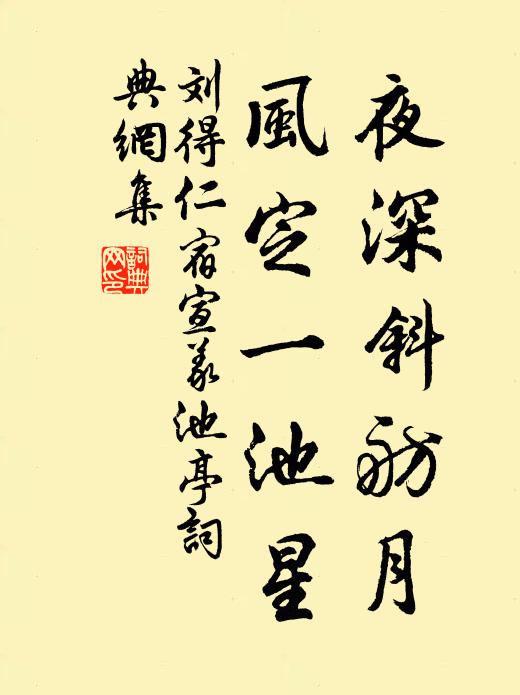 夜深斜舫月
風定一池星
刘得仁宿宣義池亭詞
典網集
詞典网印